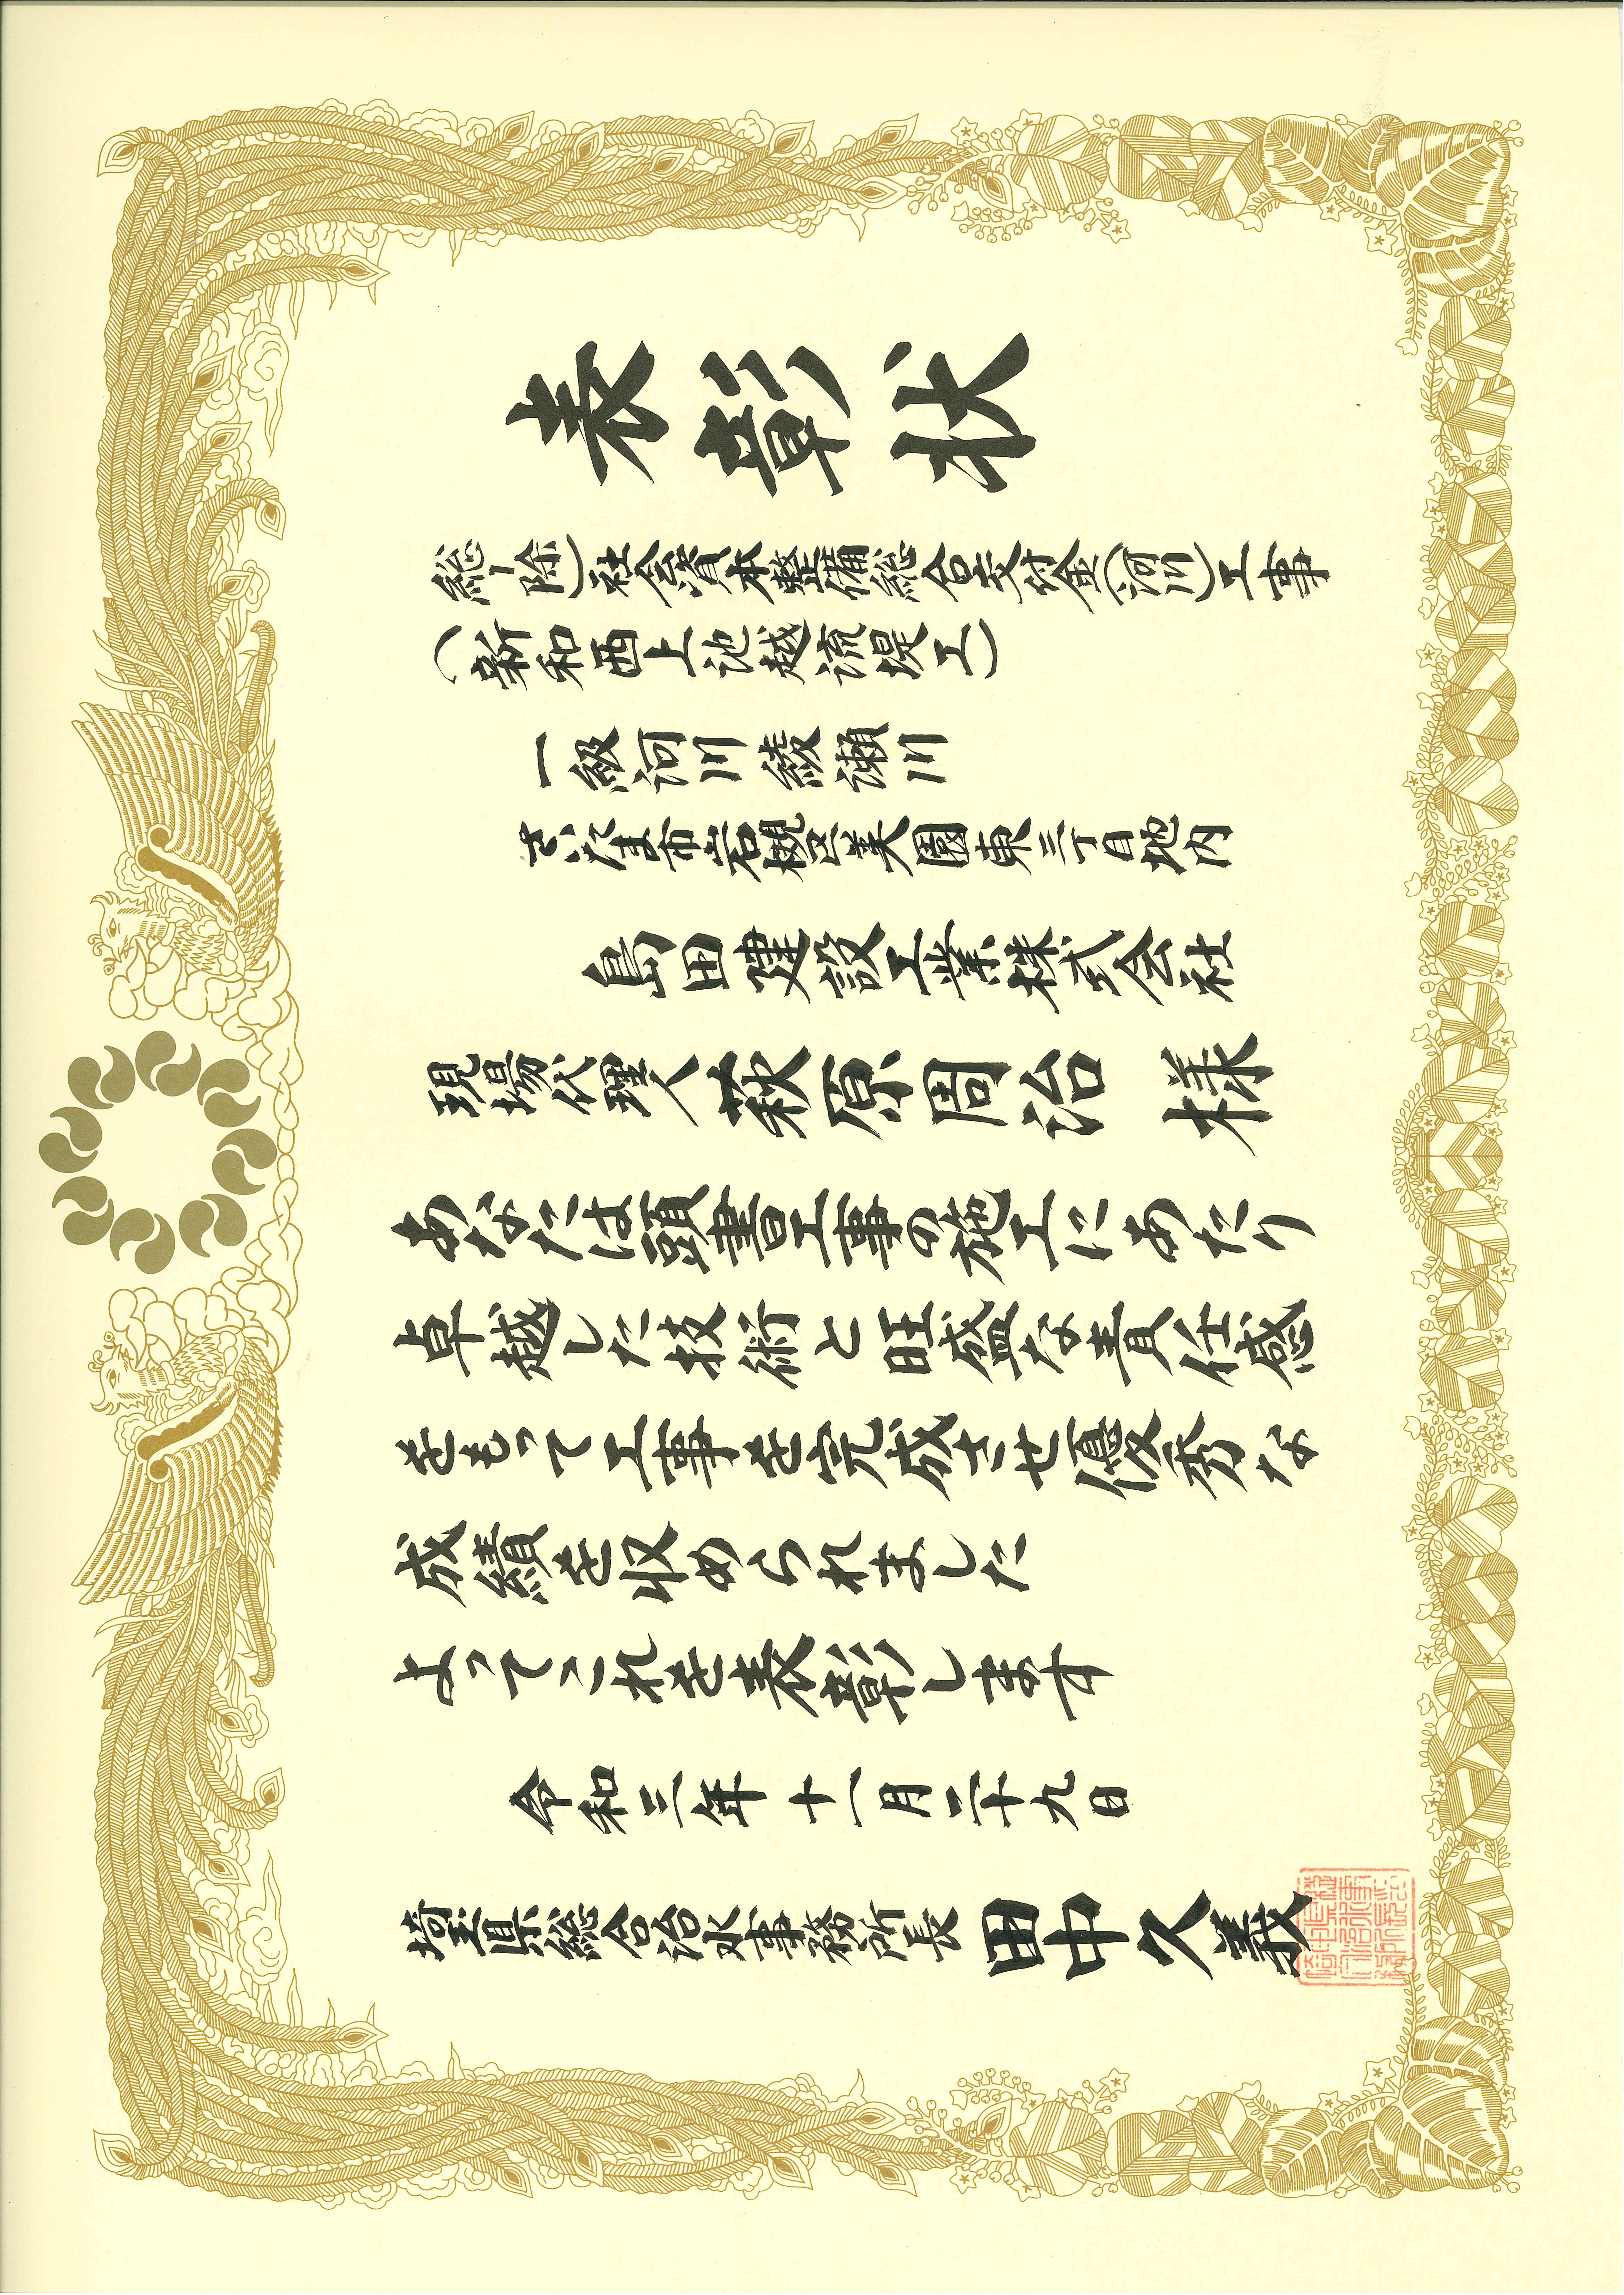 表彰状
総Ⅰ除)社会資本整備総合交付金(河川)工事
(新和西上池越流堤工)
一級河川綾瀬川
さいたま市岩槻区美園東三丁目地内
島田建設工業株式会社
現場代理人 萩原周治 様
あなたは頭書工事の施工にあたり
卓越した技術と旺盛な責任感
をもって工事を完成させ優秀な
成績を収められました
よってこれを表彰します
令和三年十一月二十九日
埼玉県総合治水事務所長 田中久義